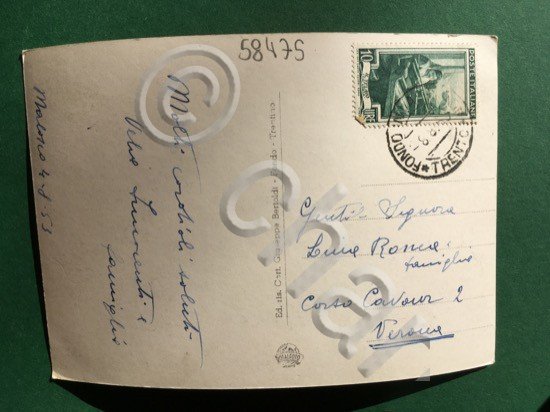 58475
Malosco 4-8-53
Molti cordiali saluti
Velia Innocenti e
famiglia
Ed. ris. Cart. Giuseppe Bertoldi - Fondo - Trentino
POSTE ITALIANE
10
LIRE
FONDO * TRENTO
Gentile Signora
Lina Roma e
famiglia
Corso Cavour 2
Verona